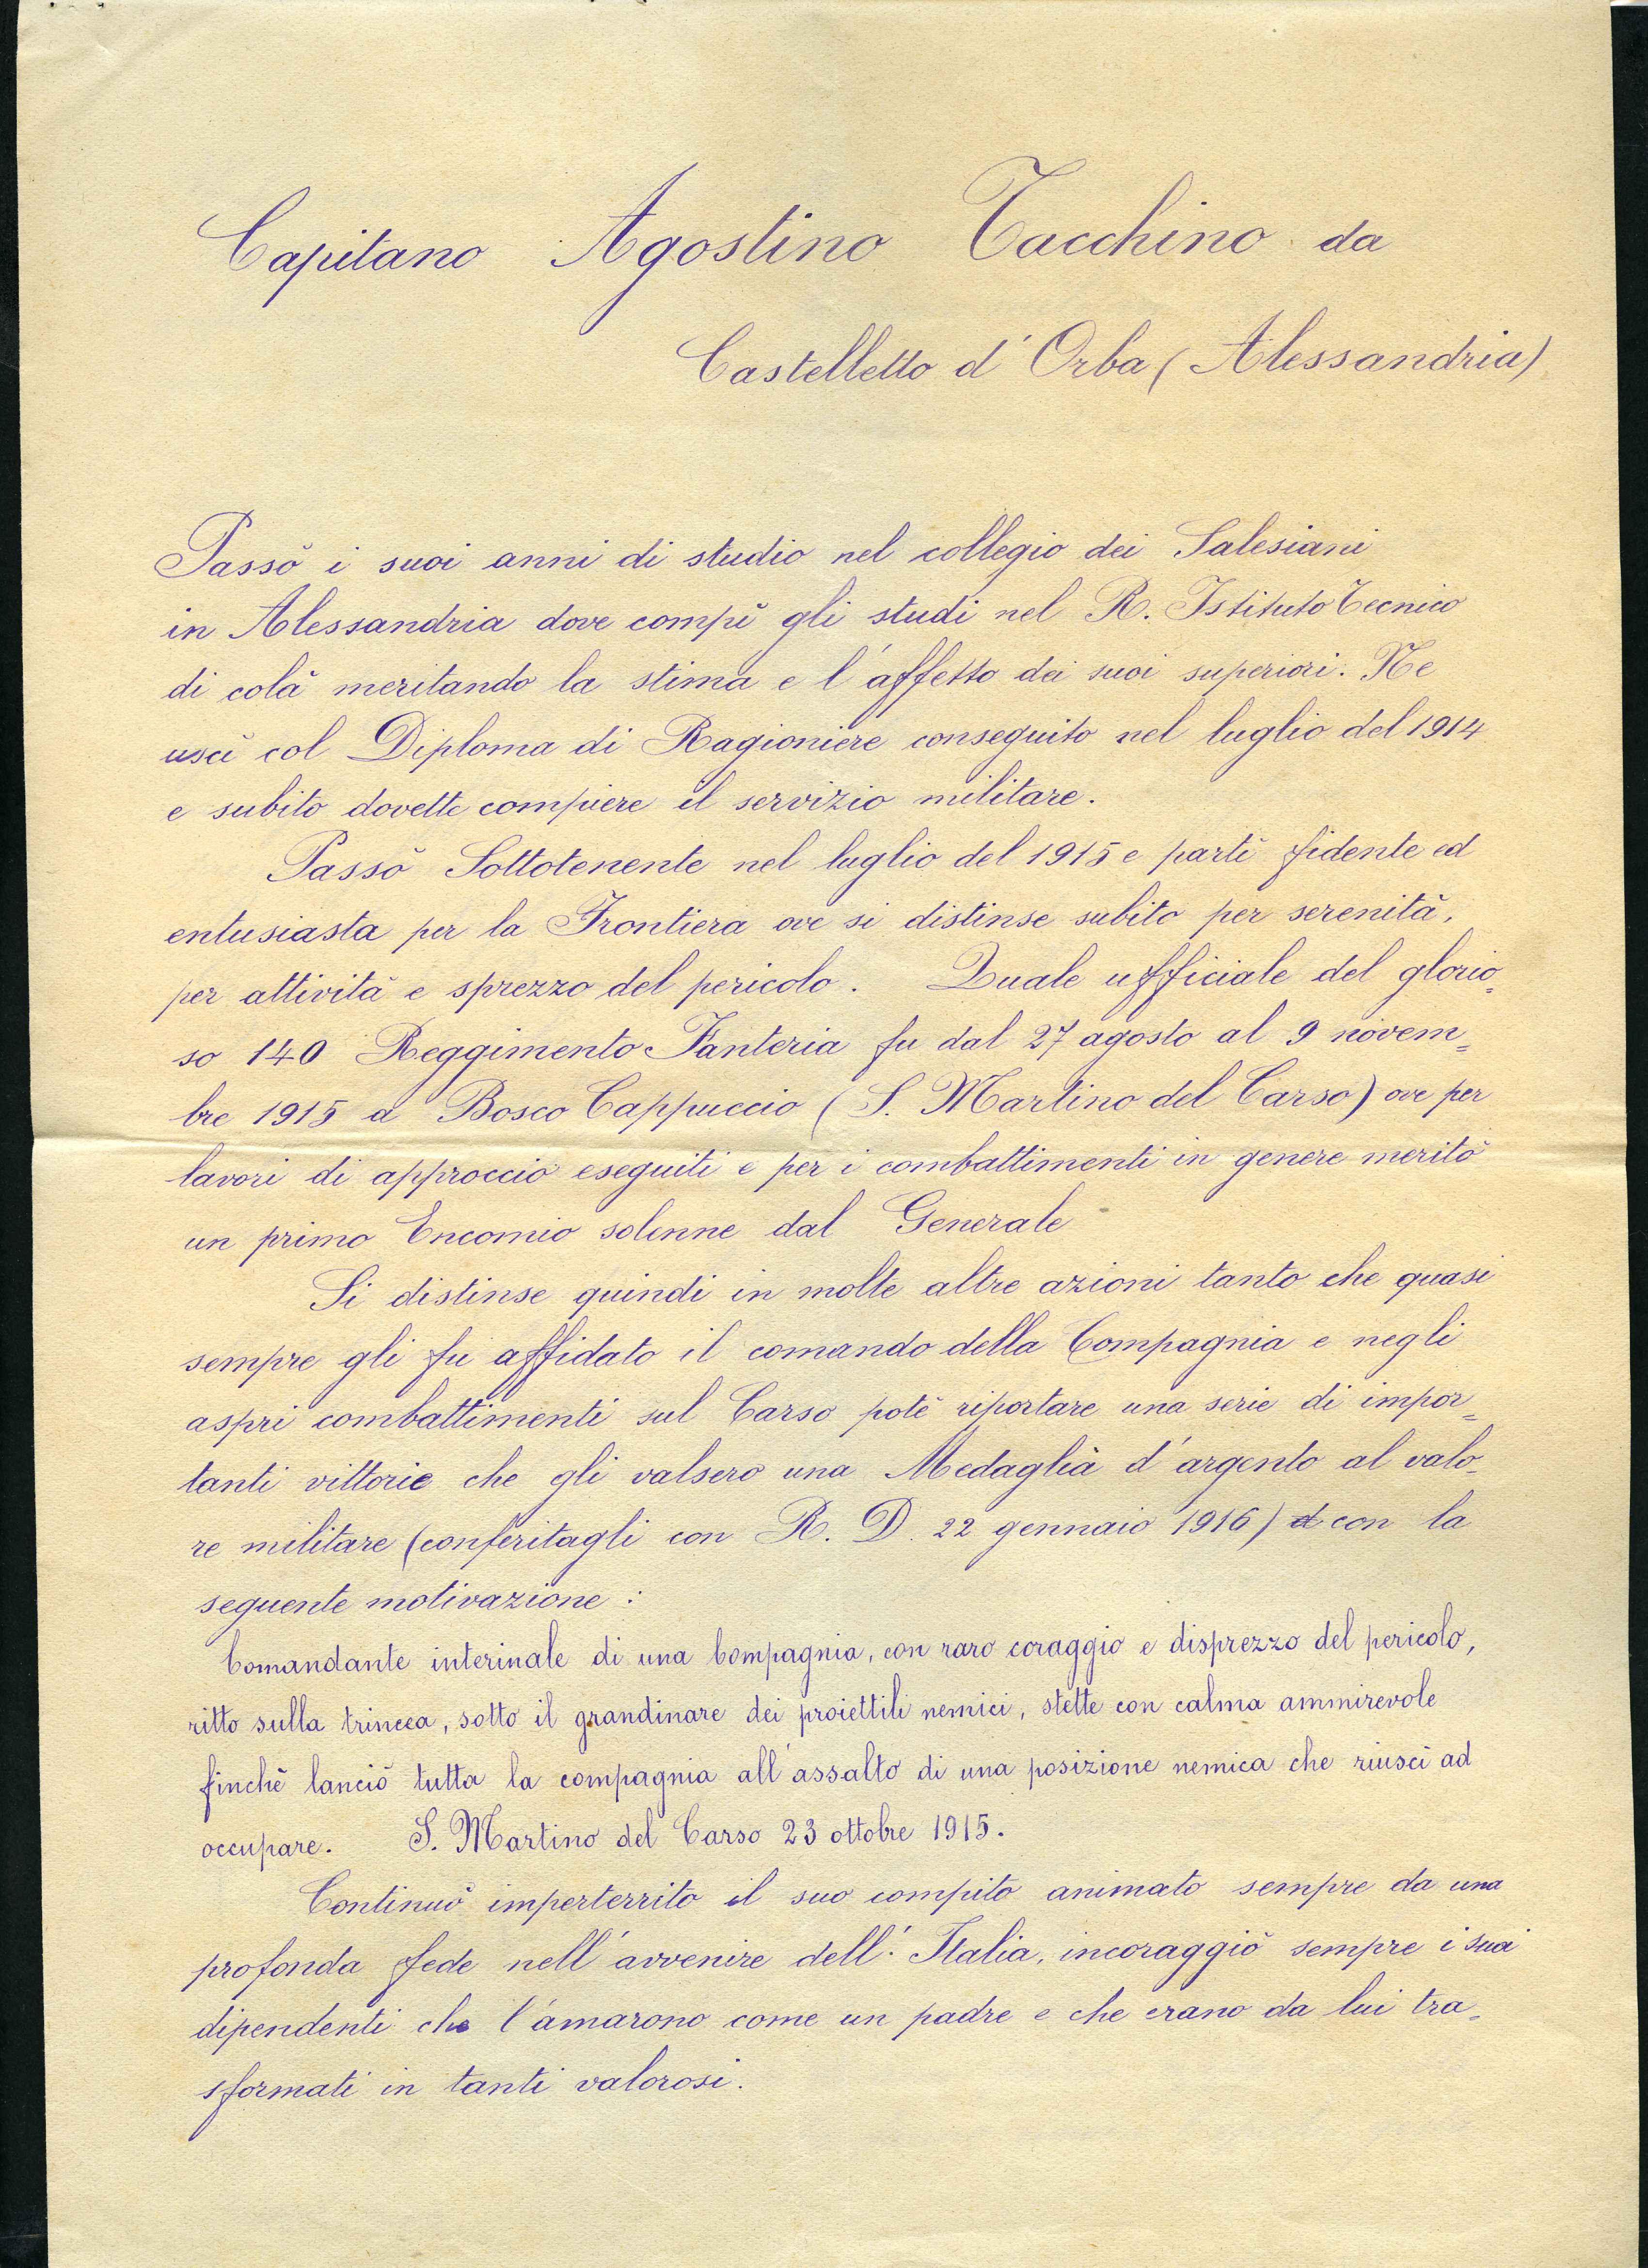 Capitano Agostino Tacchino da
Castelletto d'Orba (Alessandria)
Passò i suoi anni di studio nel collegio dei Salesiani
in Alessandria dove compì gli studi nel R. Istituto Tecnico
di colà meritando la stima e l'affetto dei suoi superiori. Ne
uscì col Diploma di Ragioniere conseguito nel luglio del 1914
e subito dovette compiere il servizio militare.
Passò Sottotenente nel luglio del 1915 e partì fidente ed
entusiasta per la Frontiera ove si distinse subito per serenità,
per attività e sprezzo del pericolo. Quale ufficiale del glorio=
so 140 Reggimento Fanteria fu dal 27 agosto al 9 novem=
bre 1915 a Bosco Cappuccio (S. Martino del Carso) ove per
lavori di approccio eseguiti e per i combattimenti in genere meritò
un primo Encomio solenne dal Generale
Si distinse quindi in molte altre azioni tanto che quasi
sempre gli fu affidato il comando della Compagnia e negli
aspri combattimenti sul Carso potè riportare una serie di impor=
tanti vittorie che gli valsero una Medaglia d'argento al valo=
re militare (conferitagli con R. D. 22 gennaio 1916) con la
seguente motivazione:
Comandante interinale di una Compagnia, con raro coraggio e disprezzo del pericolo,
ritto sulla trincea, sotto il grandinare dei proiettili nemici, stette con calma ammirevole
finchè lanciò tutta la compagnia all'assalto di una posizione nemica che riuscì ad
occupare. S. Martino del Carso 23 ottobre 1915.
Continuò imperterrito il suo compito animato sempre da una
profonda fede nell'avvenire dell'Italia, incoraggiò sempre i suoi
dipendenti che l'amarono come un padre e che erano da lui tra=
sformati in tanti valorosi.